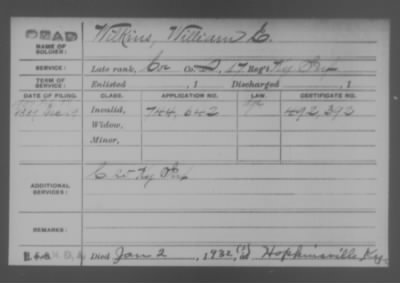 DEAD
NAME OF SOLDIER: Wilkins, William E.
SERVICE: Late rank, Co. 17 Reg't Ky Inf
TERM OF SERVICE: Enlisted , 1 Discharged , 1
DATE OF FILING. CLASS. APPLICATION NO. LAW. CERTIFICATE NO.
Invalid, 744,642 492,392
Widow,
Minor,
ADDITIONAL SERVICES: C 25 Ky Inf
REMARKS:
Died Jan 2, 1932, at Hopkinsville Ky.